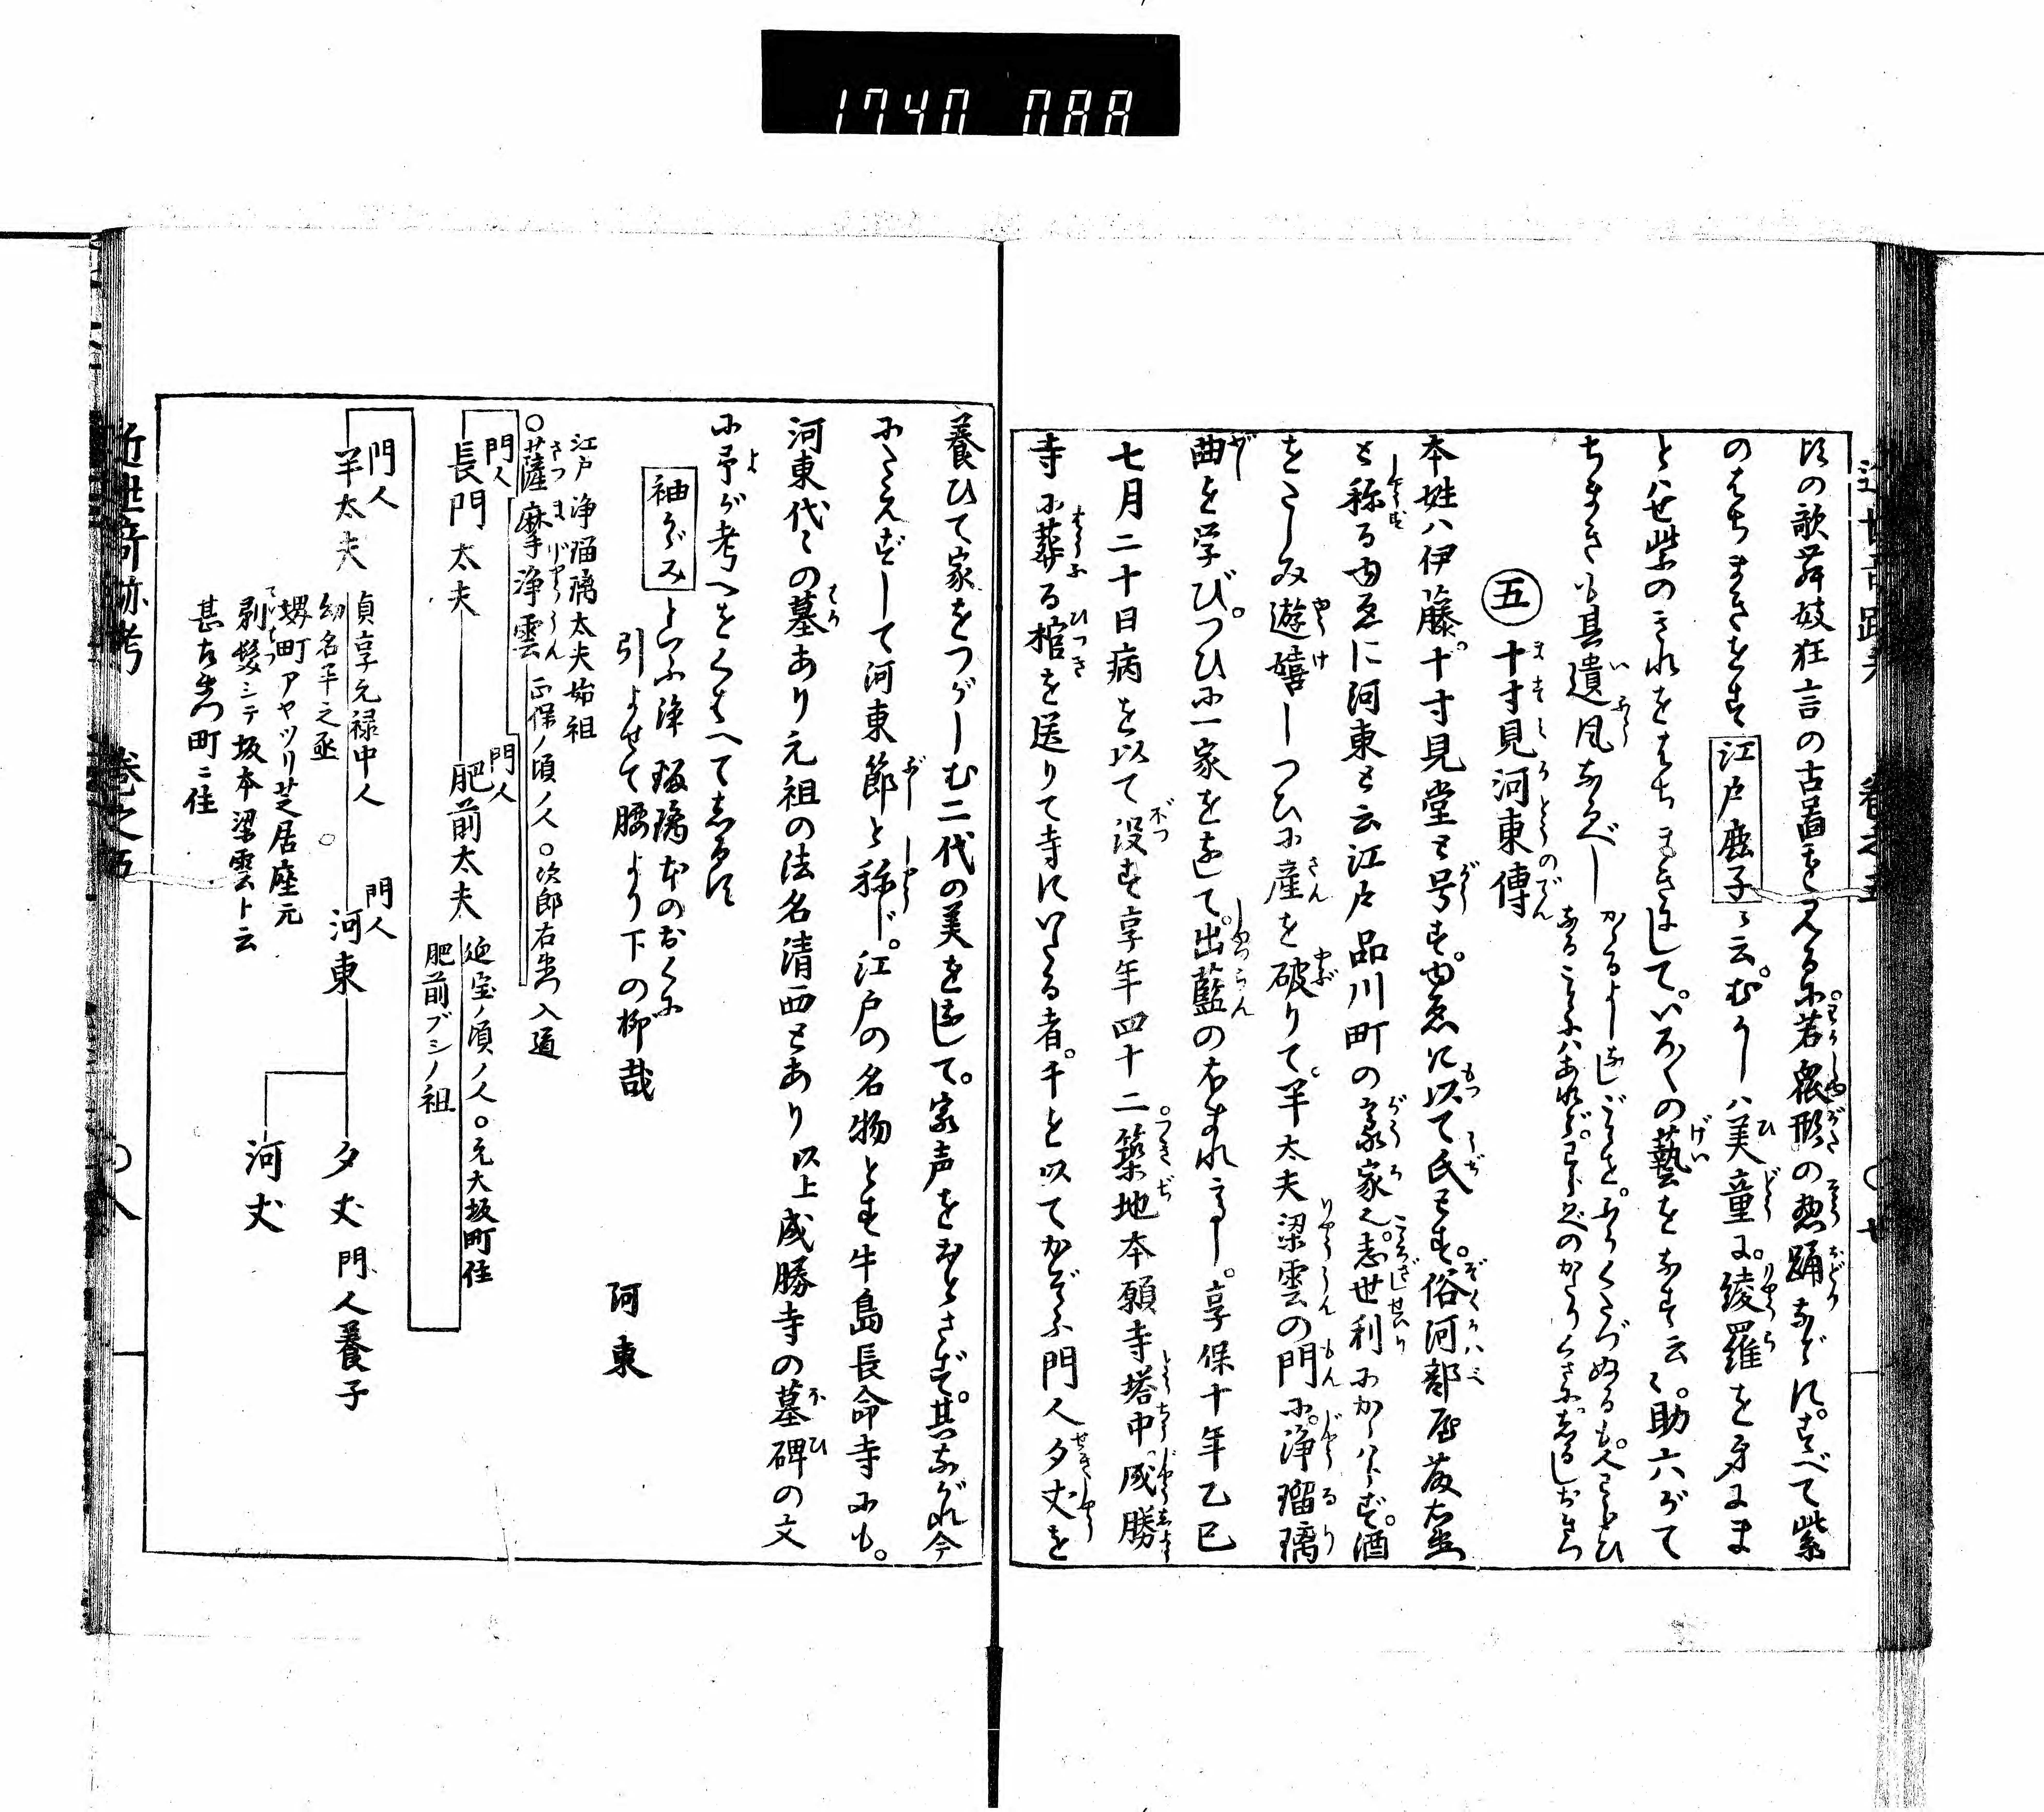 1740 088
頃の歌舞妓狂言の古畫を見るに若衆形の惣踊などに。すべて紫
のはちまきをす江戸鹿子に云。むかしハ美童に。綾羅を身にま
とハせ紫のきれをはちまきにして。いろ〱の藝をなす云々。助六がて
ちまきも其遺風なるべし
五 十寸見河東傳
本姓ハ伊藤。十寸見堂と号す。ゆゑに以て氏とす。俗河部屋藤左衛
と稱るゆゑに河東と云江戸品川町の豪家也。志世利にかゝハらず。酒
をたしみ遊嬉しつひに産を破りて。半太夫梁雲の門に。浄瑠璃
曲を学び。つひに一家をなして。出藍のほまれ高し。享保十年乙巳
七月二十日病を以て没す享年四十二築地本願寺塔中。成勝
寺に葬る棺を送りて寺にいたる者。千を以てかぞふ門人夕丈を
養ひて家をつがしむ二代の美をなして。家声をおとさず。其ながれ今
にたえずして河東節と稱じ。江戸の名物とす牛島長命寺にも。
河東代々の墓あり元祖の法名清西とあり以上成勝寺の墓碑の文
に予が考へをくはへてしるす
袖かゞみといふ浄瑠璃本のおくに
引よせて腰より下の柳哉 河東
江戸浄瑠璃太夫始祖
○薩摩浄雲 正保ノ頃ノ人○次郎右衛門入道
門人
長門太夫
門人
肥前太夫 延宝ノ頃ノ人○元大坂町住
肥前ブシノ祖
門人
半太夫 貞享元禄中人
幼名半之丞
堺町アヤツリ芝居座元
剃髪シテ坂本梁雲ト云
甚左衛門町ニ住
門人
河東
夕丈 門人養子
河丈
近世奇跡考 巻之五 ○八